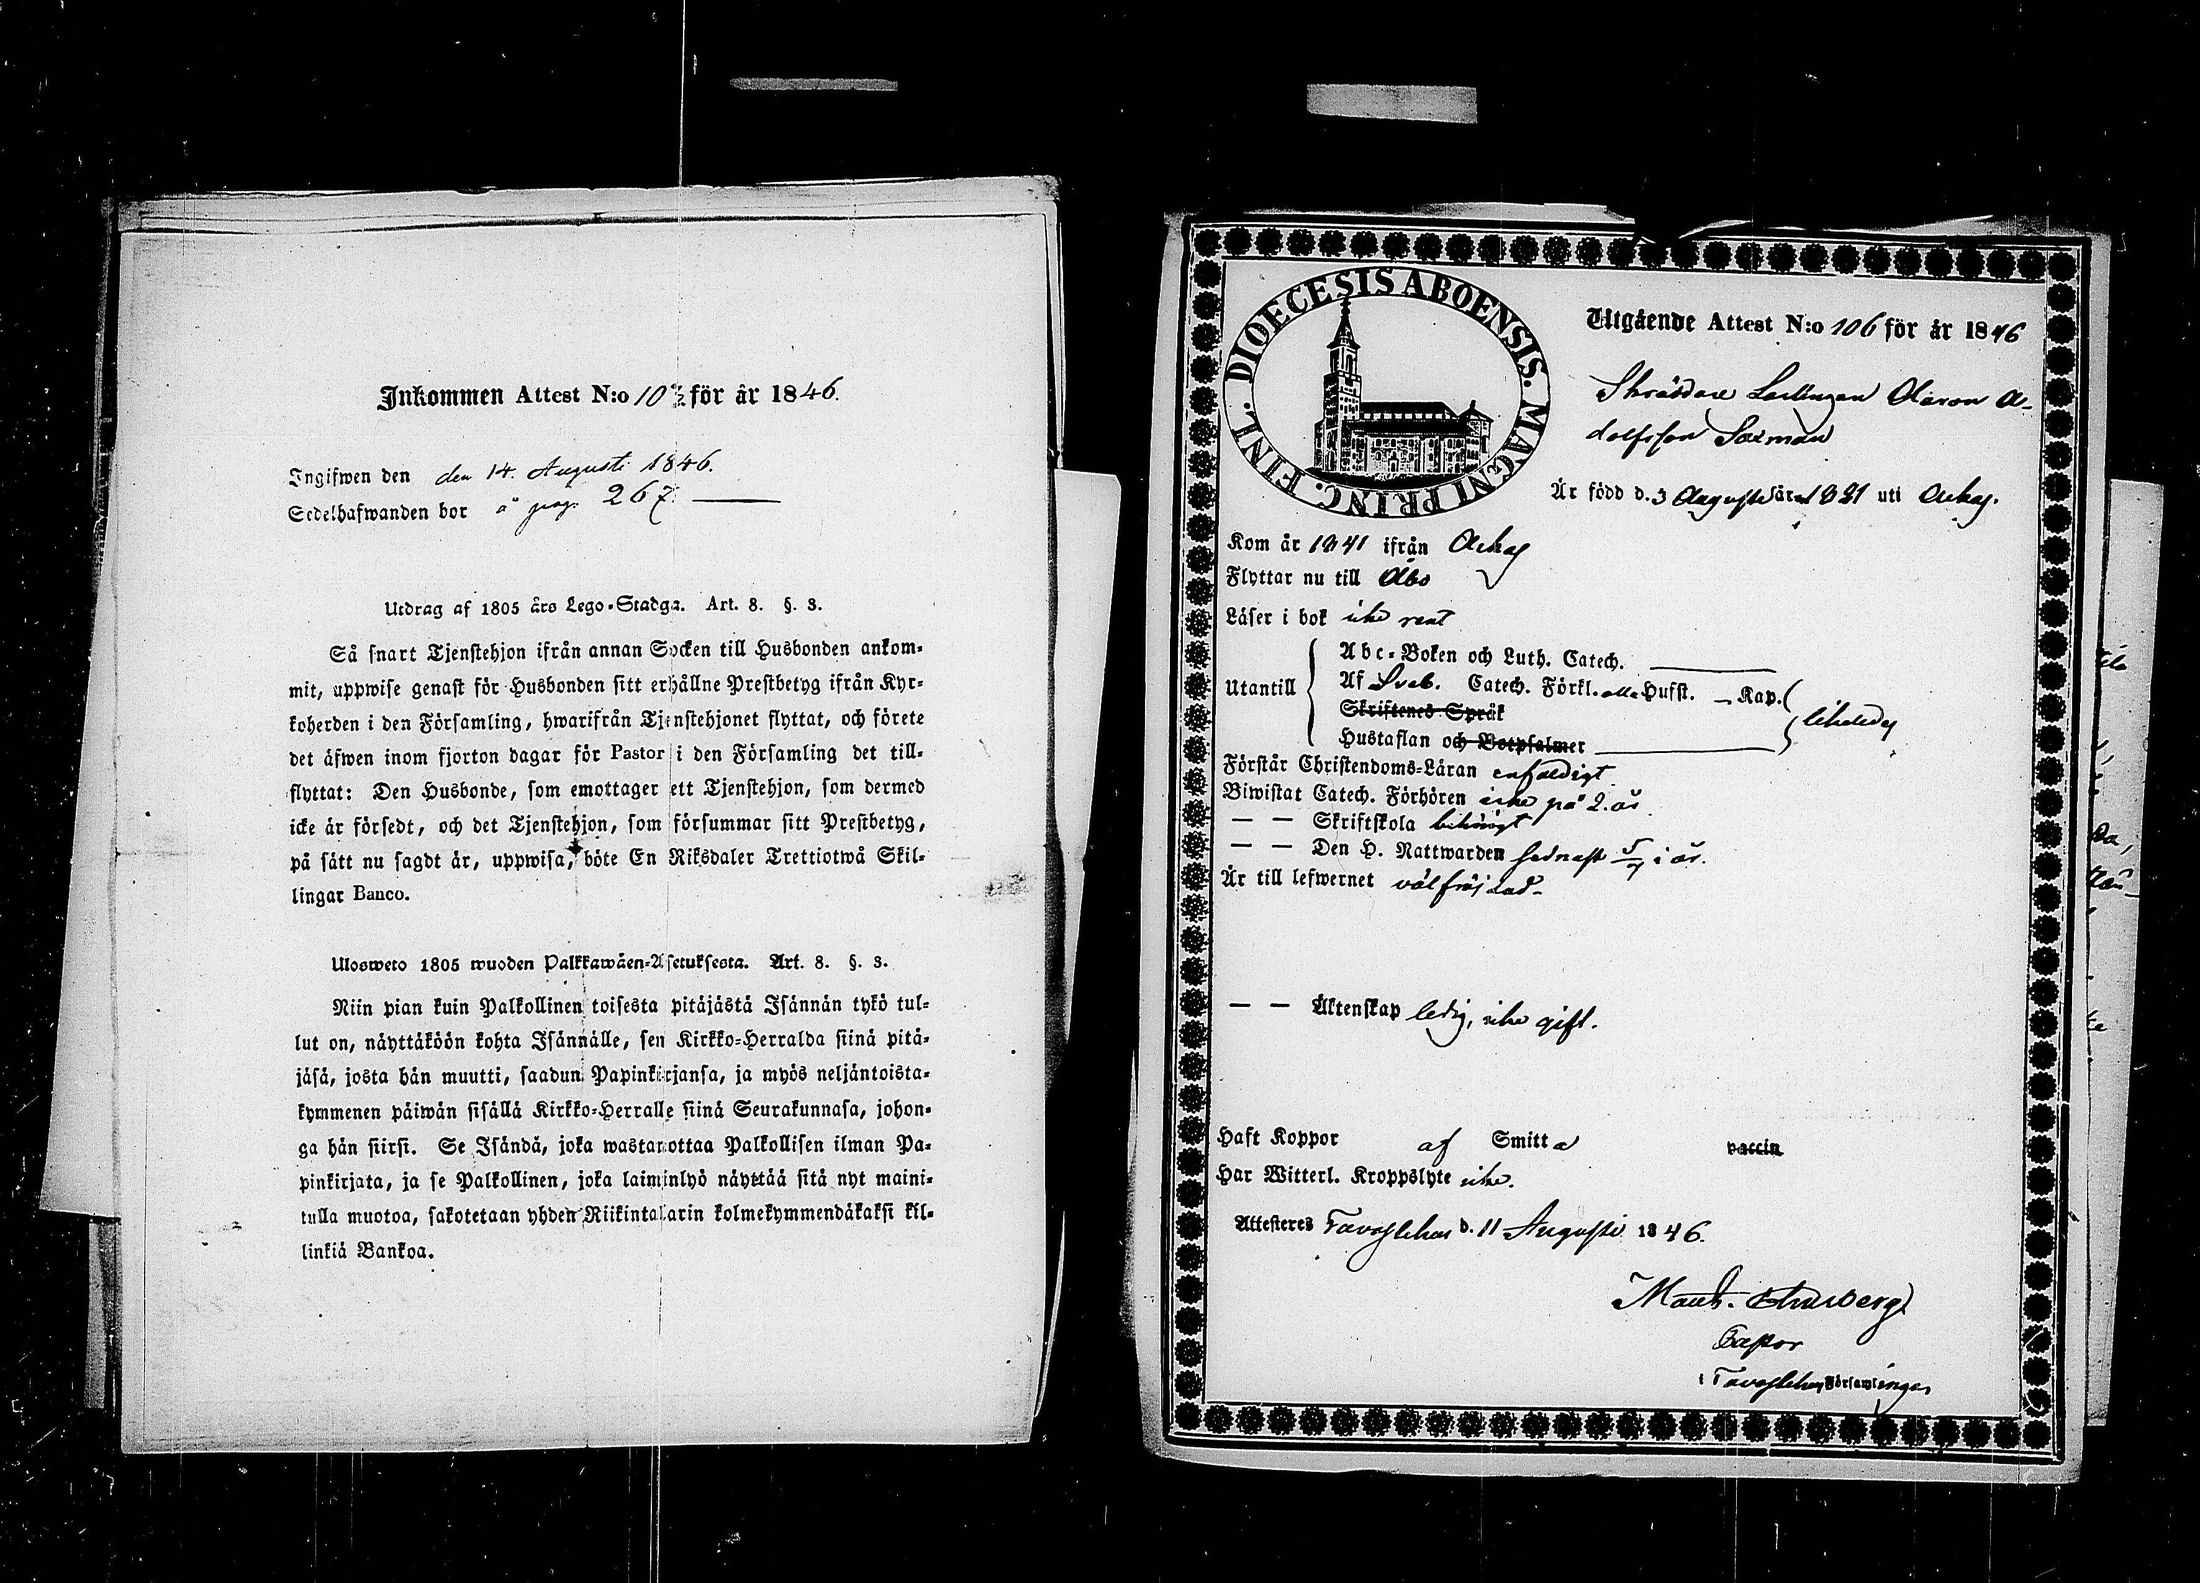 Inkommen Attest N:o 10 för år 1846.
Ingifwen den den 14. Augusti 1846.
Sedelhafwanden bor å pag. 267.
Utdrag af 1805 års Lego-Stadga. Art. 8. §. 3.
Så snart Tjenstehjon ifrån annan Socken till Husbonden ankom-
mit, uppwise genast för Husbonden sitt erhållne Prestbetyg ifrån Kyr-
koherden i den Församling, hwarifrån Tjenstehjonet flyttat, och förete
det äfwen inom fjorton dagar för Pastor i den Församling det till-
flyttat: Den Husbonde, som emottager ett Tjenstehjon, som dermed
icke är försedt, och det Tjenstehjon, som försummar sitt Prestbetyg,
på sätt nu sagdt är, uppwisa, böte En Riksdaler Trettiotwå Skil-
lingar Banco.
Ulosweto 1805 wuoden Palkkawäen-Asetuksesta. Art. 8. §. 3.
Niin pian kuin Palkollinen toisesta pitäjästä Isännän tykö tul-
lut on, näyttäköön kohta Isännälle, sen Kirkko-Herralda siinä pitä-
jäsä, josta hän muutti, saadun Papinkirjansa, ja myös neljäntoista-
kymmenen päiwän sisällä Kirkko-Herralle siinä Seurakunnasa, johon-
ga hän siirsi. Se Isändä, joka wastanottaa Palkollisen ilman Pa-
pinkirjata, ja se Palkollinen, joka laiminlyö näyttää sitä nyt maini-
tulla muotoa, sakotetaan yhden Riikintalarin kolmekymmendäkaksi kil-
linkiä Bankoa.
DIOECESIS ABOENSIS. MAGNI PRINC. FINL.
Utgående Attest N:o 106 för år 1846
Skräddare Lärlingen Aaron A-
dolfsson Saxman
Är född d. 3 Augusti år 1821 uti Ackas.
Kom år 1841 ifrån Ackas
Flyttar nu till Åbo
Läser i bok icke rent
Utantill
Abc-Boken och Luth. Catech.
Af Sveb. Catech. Förkl. alla Hufst. – Kap.
Skriftenes Språk
Hustaflan och Botpsalmer
likaledes
Förstår Christendoms-Läran enfaldigt
Biwistat Catech. Förhören icke på 2. år
— — Skriftskola behörigt
— — Den H. Nattwarden sednast 5/7 i år.
Är till lefwernet välfräjdad.
— — Äktenskap ledig, icke gift.
Haft Koppor af Smitta vaccin
Har Witterl. Kroppslyte icke.
Attesteres Tavastehus d. 11 Augusti 1846.
Pastor
i Tavastehus Församlingar